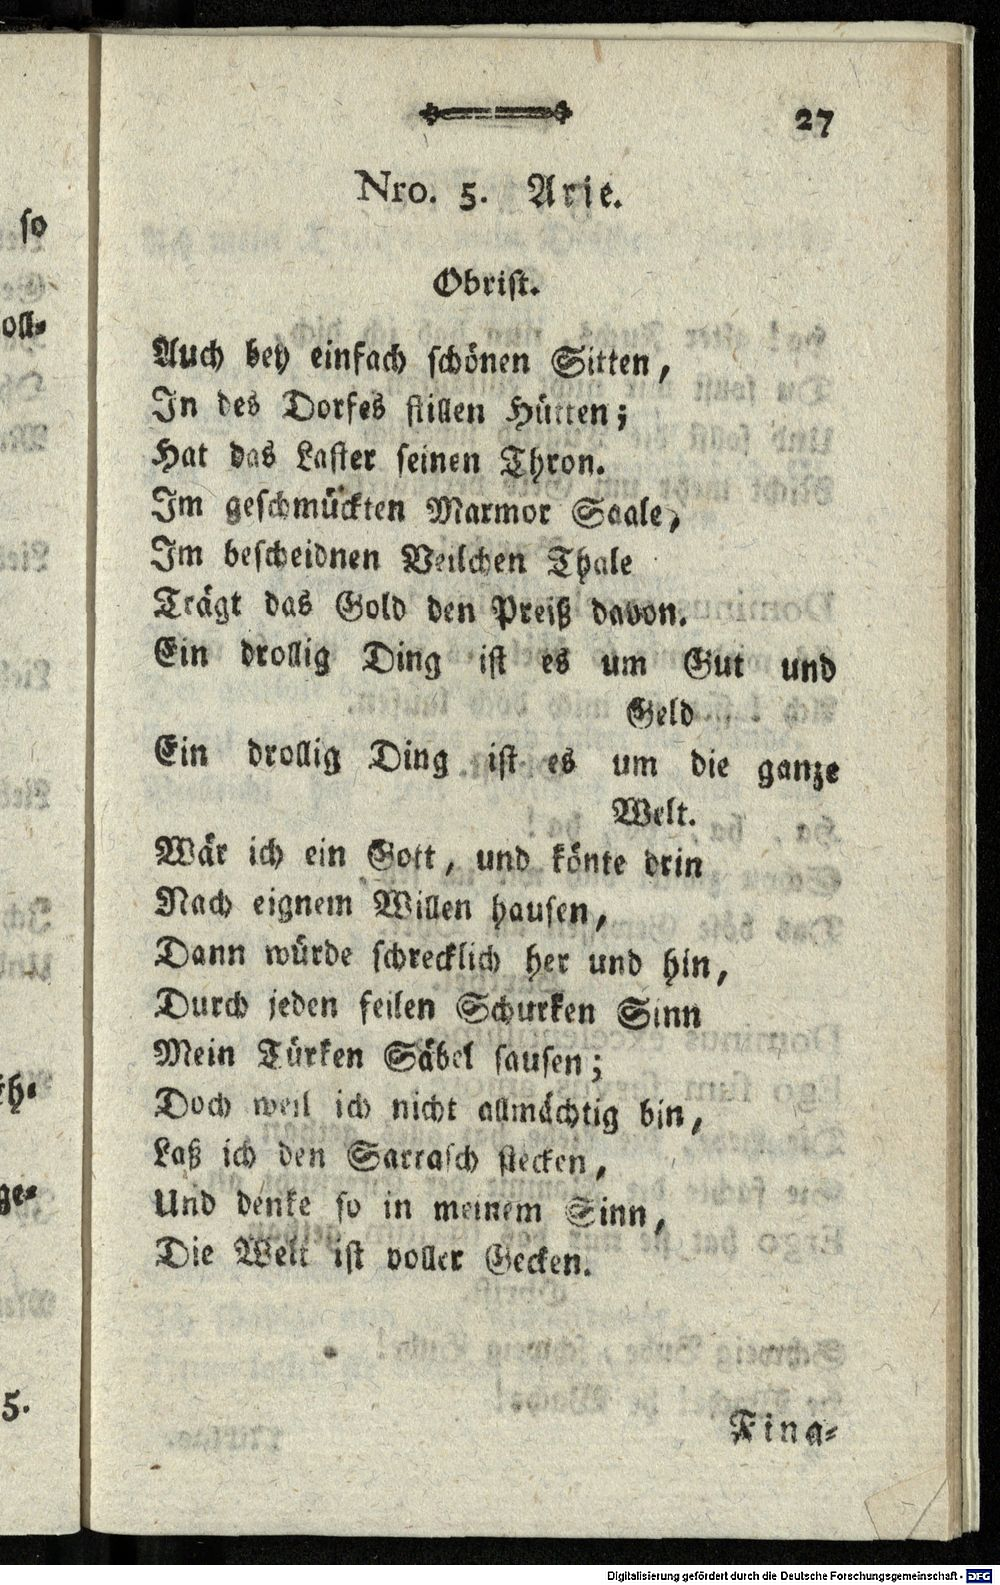 27
Nro. 5. Arie.
Obrist.
Auch bey einfach schönen Sitten,
In des Dorfes stillen Hütten;
Hat das Laster seinen Thron.
Im geschmückten Marmor Saale,
Im bescheidnen Veilchen Thale
Trägt das Gold den Preiß davon.
Ein drollig Ding ist es um Gut und
Geld
Ein drollig Ding ist es um die ganze
Welt.
Wär ich ein Gott, und könte drin
Nach eignem Willen hausen,
Dann würde schrecklich her und hin,
Durch jeden feilen Schurken Sinn
Mein Türken Säbel sausen;
Doch weil ich nicht allmächtig bin,
Laß ich den Sarrasch stecken,
Und denke so in meinem Sinn,
Die Welt ist voller Gecken.
Fina-
so
oll-
th-
ge-
5.
Digitalisierung gefördert durch die Deutsche Forschungsgemeinschaft - DFG